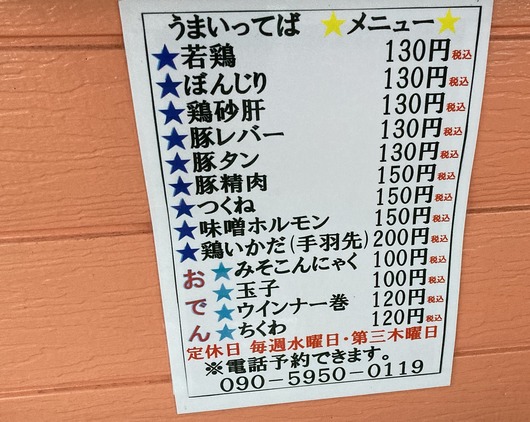 うまいってば ★メニュー★
★若鶏 130円税込
★ぼんじり 130円税込
★鶏砂肝 130円税込
★豚レバー 130円税込
★豚タン 130円税込
★豚精肉 150円税込
★つくね 150円税込
★味噌ホルモン 150円税込
★鶏いかだ(手羽先) 200円税込
おでん
★みそこんにゃく 100円税込
★玉子 100円税込
★ウインナー巻 120円税込
★ちくわ 120円税込
定休日 毎週水曜日・第三木曜日
※電話予約できます。
090-5950-0119